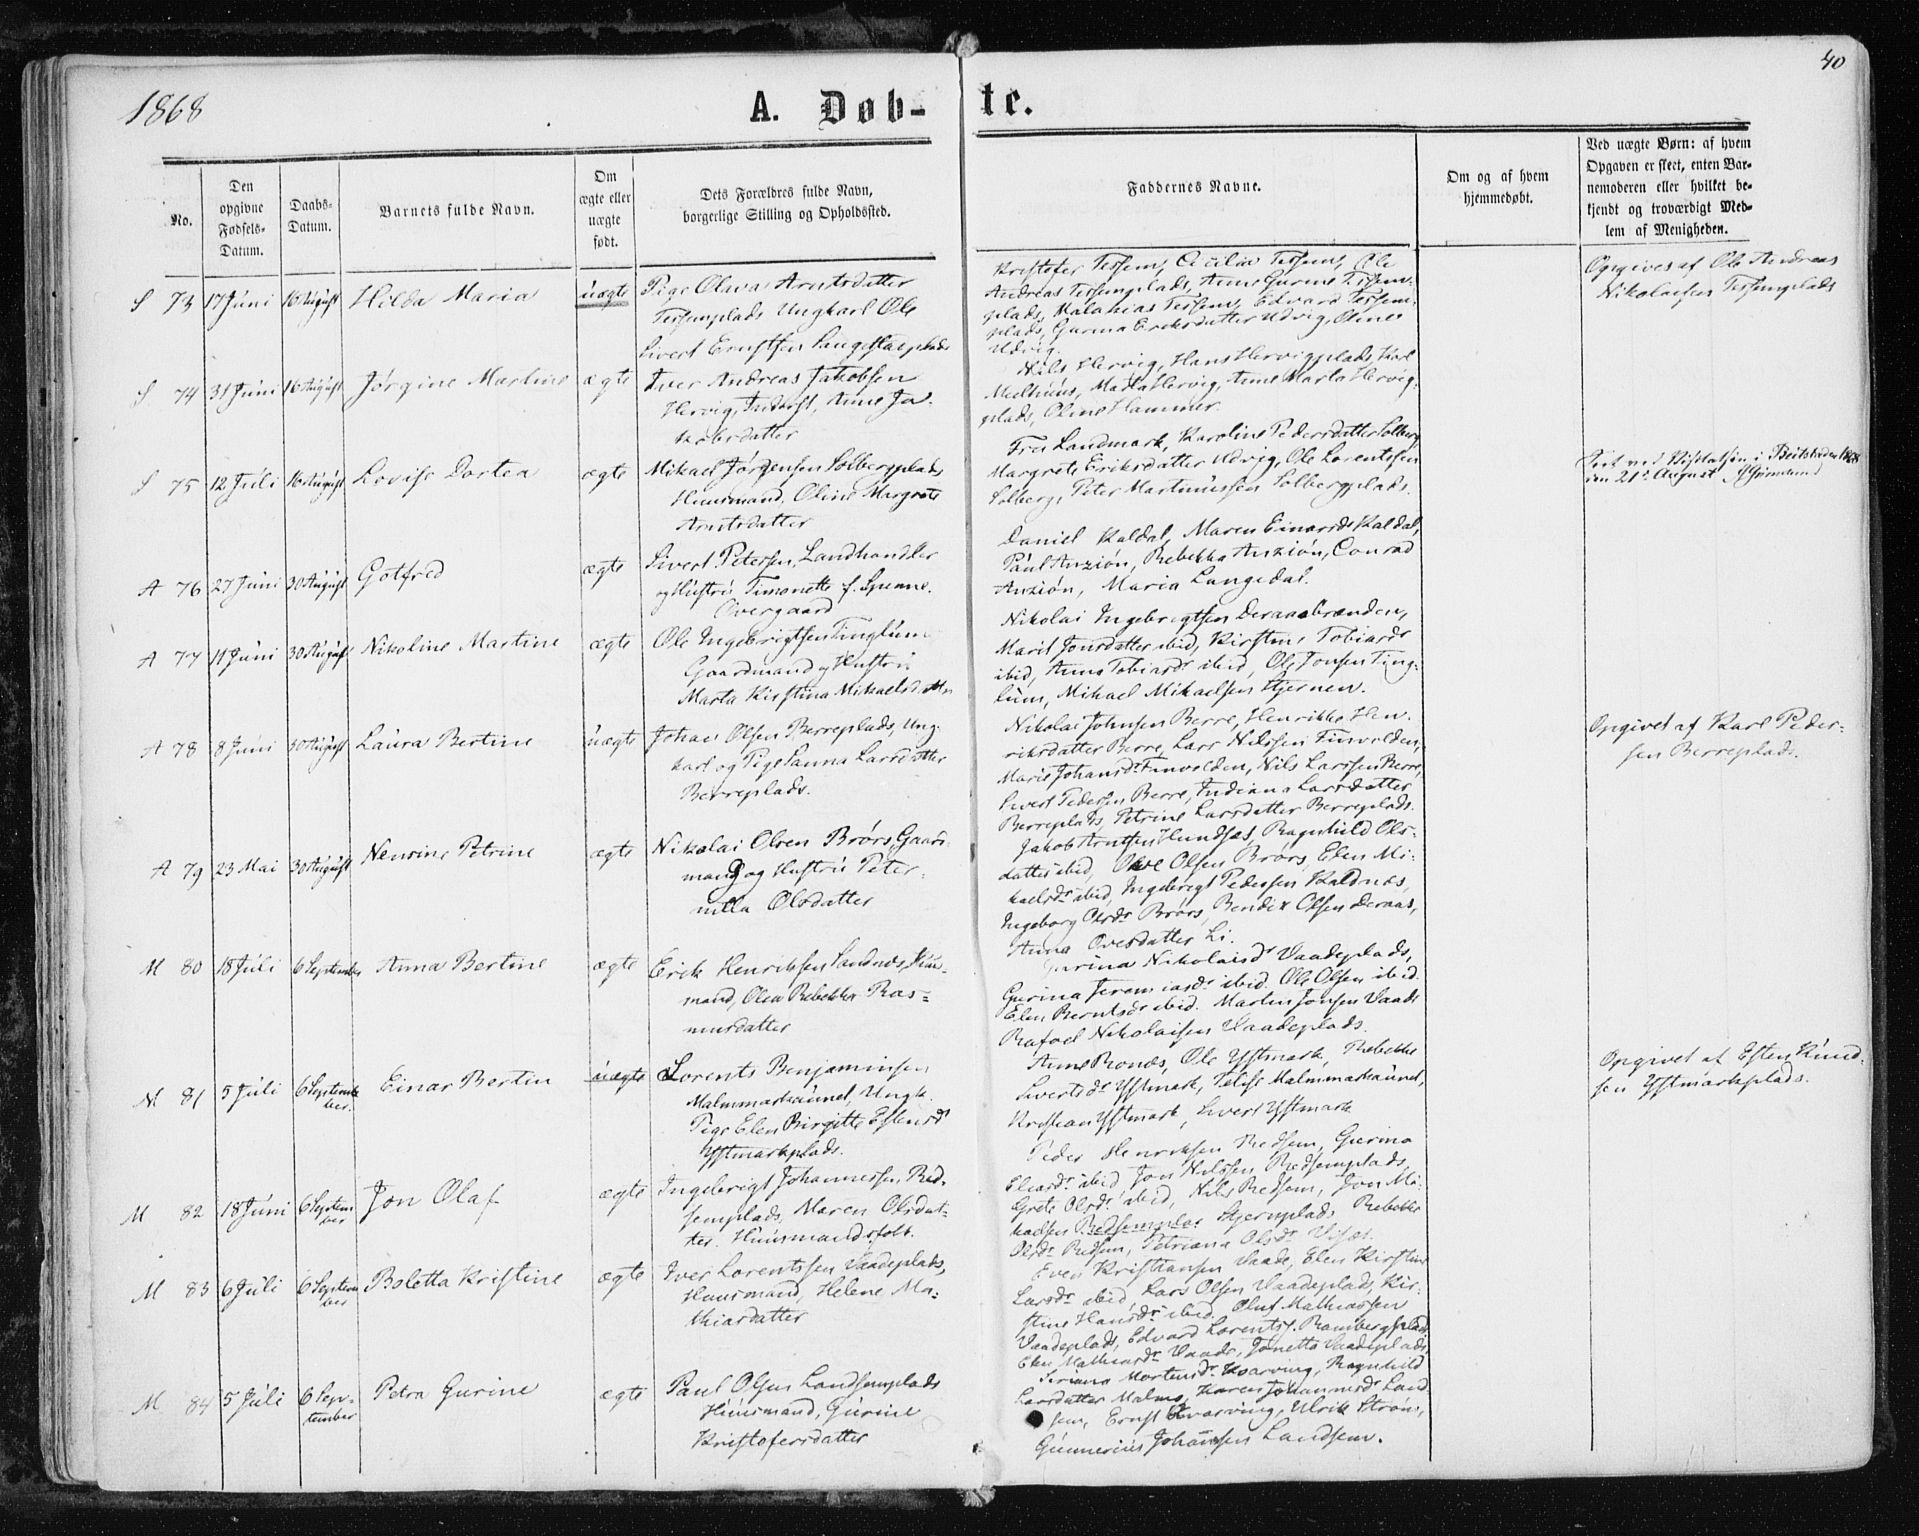 1868
40
A. Døb-te.
No.
Den opgivne Fødsels-Datum.
Daabs-Datum.
Barnets fulde Navn.
Om ægte eller uægte født.
Dets Forældres fulde Navn, borgerlige Stilling og Opholdssted.
Faddernes Navne.
Om og af hvem hjemmedøbt.
Ved uægte Børn: af hvem Opgaven er skeet, enten Barnemoderen eller hvilket bekjendt og troværdigt Medlem af Menigheden.
S 73 17 Juni 16 August Hilda Maria uægte
Pige Olava Arntsdatter
Tessemplads Ungkarl Ole
Sivert Ernstsen
Kristofer Tessem, Cecilia Tessem, Ole
Andreas Tessemplads, Anne Gurine Tessem-
plads, Mathias Tessem, Edvard Tessem-
plads, Gurina Eriksdatter Udvig, Oline
Udvig.
Opgives af Ole Andreas
Nikolaisen Tessemplads
S 74 31 Juni 16 August Jørgine Martine ægte
Iver Andreas Jakobsen
Hervig, Inderst, Anne Ja-
kobsdatter
Nils Hervig, Hans Hervigplads, Karl
Melhuus, Marta Hervig, Anne Marta Hervig-
plads, Oline Hammer.
S 75 12 Juli 16 August Lovise Dortea ægte
Mikael Jørgensen Solbergplads
Huusmand, Oline Margrete
Arntsdatter
Landmark, Karoline Pedersdatter Solberg,
Margrete Eriksdatter Udvig, Ole Lorentssen
Solberg, Peter Martinussen Solbergplads.
Seet ved Visitatsen i Beitstaden 1868
den 21de August
A 76 27 Juni 30 August Gotfred ægte
Sivert Petersen, Landhandler
og Hustru Timonette f. Spenne.
Overgaard
Daniel Kaldal, Maren Einarsdr Kaldal,
Paul Anziøn, Rebekka Anziøn, Conrad
Anziøn, Maria Langedal.
A 77 11 Juni 30 August Nikoline Martine ægte
Ole Ingebrigtsen Tinglum
Gaardmand og Hustru
Marta Kirstina Mikaelsdatter
Nikolai Ingebrigtsen Deraasbrænden,
Marit Jonsdatter ibid, Kirstine Tobiasdr
ibid, Anne Tobiasdr ibid, Ole Jonsen Ting-
lum, Mikael Mikaelsen Hjernen.
A 78 8 Juni 30 August Laura Bertine uægte
Johan Olsen Berreplads, Ung-
karl og Pige Sanna Larsdatter
Berreplads.
Nikolai Johnsen Berre, Henrikke Hen-
riksdatter Berre, Lars Nilssen Finvolden,
Marie Johansdr Finvolden, Nils Larssen Berre,
Sivert Pedersen Berre, Indiana Larsdatter
Berreplads Petrine Larsdatter Berreplads.
Opgivet af Karl Peder-
sen Berreplads.
A 79 23 Mai 30 August Nensine Petrine ægte
Nikolai Olsen Brørs, Gaard-
mand og Hustru Peter-
nilla Olsdatter
Jakob Arntsen Hundsæt, Ragnhild Ols-
datter ibid, Olsen Brørs, Elen Mi-
kaelsdr ibid, Ingebrigt Pedersen Kaldnæs,
Ingeborg Olsdr Brørs, Bendix Olsen Deraas,
Anna Ovesdatter Li.
M 80 18 Juli 6 September Anna Bertine ægte
Erik Henriksen Sandnæs, Huus-
mand, Olea Rebekka Ras-
musdatter
Gurina Nikolaisdr Vaadeplads,
Gurina Jeremiasdr ibid. Ole Olsen ibid.
Elen Berntsdr ibid. Martin Jonsen Vaade
Rafael Nikolaisen Vaadeplads.
M 81 5 Juli 6 September. Einar Bertin uægte
Lorents Benjaminsen
Malmmarkaunet, Ungk.
Pige Elen Birgitte Estensdr
Ystmarkplads.
Anne Ronæs, Ole Ystmark, Rebekka
Sivertsdr Ystmark, Malmmarkaunet,
Kristian Ystmark, Sivert Ystmark
Opgivet af Esten Knud-
sen Ystmarkplads.
M 82 18 Juni 6 September Jon Olaf ægte
Ingebrigt Johannessen, Red-
semplads, Maren Olsdat-
ter. Huusmandsfolk.
Peder Henriksen Redsem, Gurina
Eliasdr ibid Jon Nilssen Redsemplads,
Grete Olsdr ibid, Nils Redsem, Jon Mi-
kaelsen Hjernplads Rebekka
Olsdr Redsem, Petriana Olsdr
M 83 6 Juli 6 September Boletta Kristine ægte
Iver Lorentssen Vaadeplads,
Huusmand, Helene Ma-
thiasdatter
Even Kristiansen Vaade, Elen Kirstine
Larsdr ibid, Lars Olsen Vaadeplads, Kir-
stine Hansdr ibid. Oluf Mathiassen
Vaadeplads, Edvard Lorents. Rambergplads
Elen Mathiasdr Vaade, Jonetta Vaadeplads,
M 84 5 Juli 6 September Petra Gurine ægte
Paul Olsen Landsemplads
Huusmand, Gurine
Kristofersdatter
Mortensdr Kvarving, Ragnhild
Larsdatter Malmo, Karen Johannesdr Land-
sem, Ernst Kvarving, Ulrik Strøm,
Gunnerius Johansen Landsem.